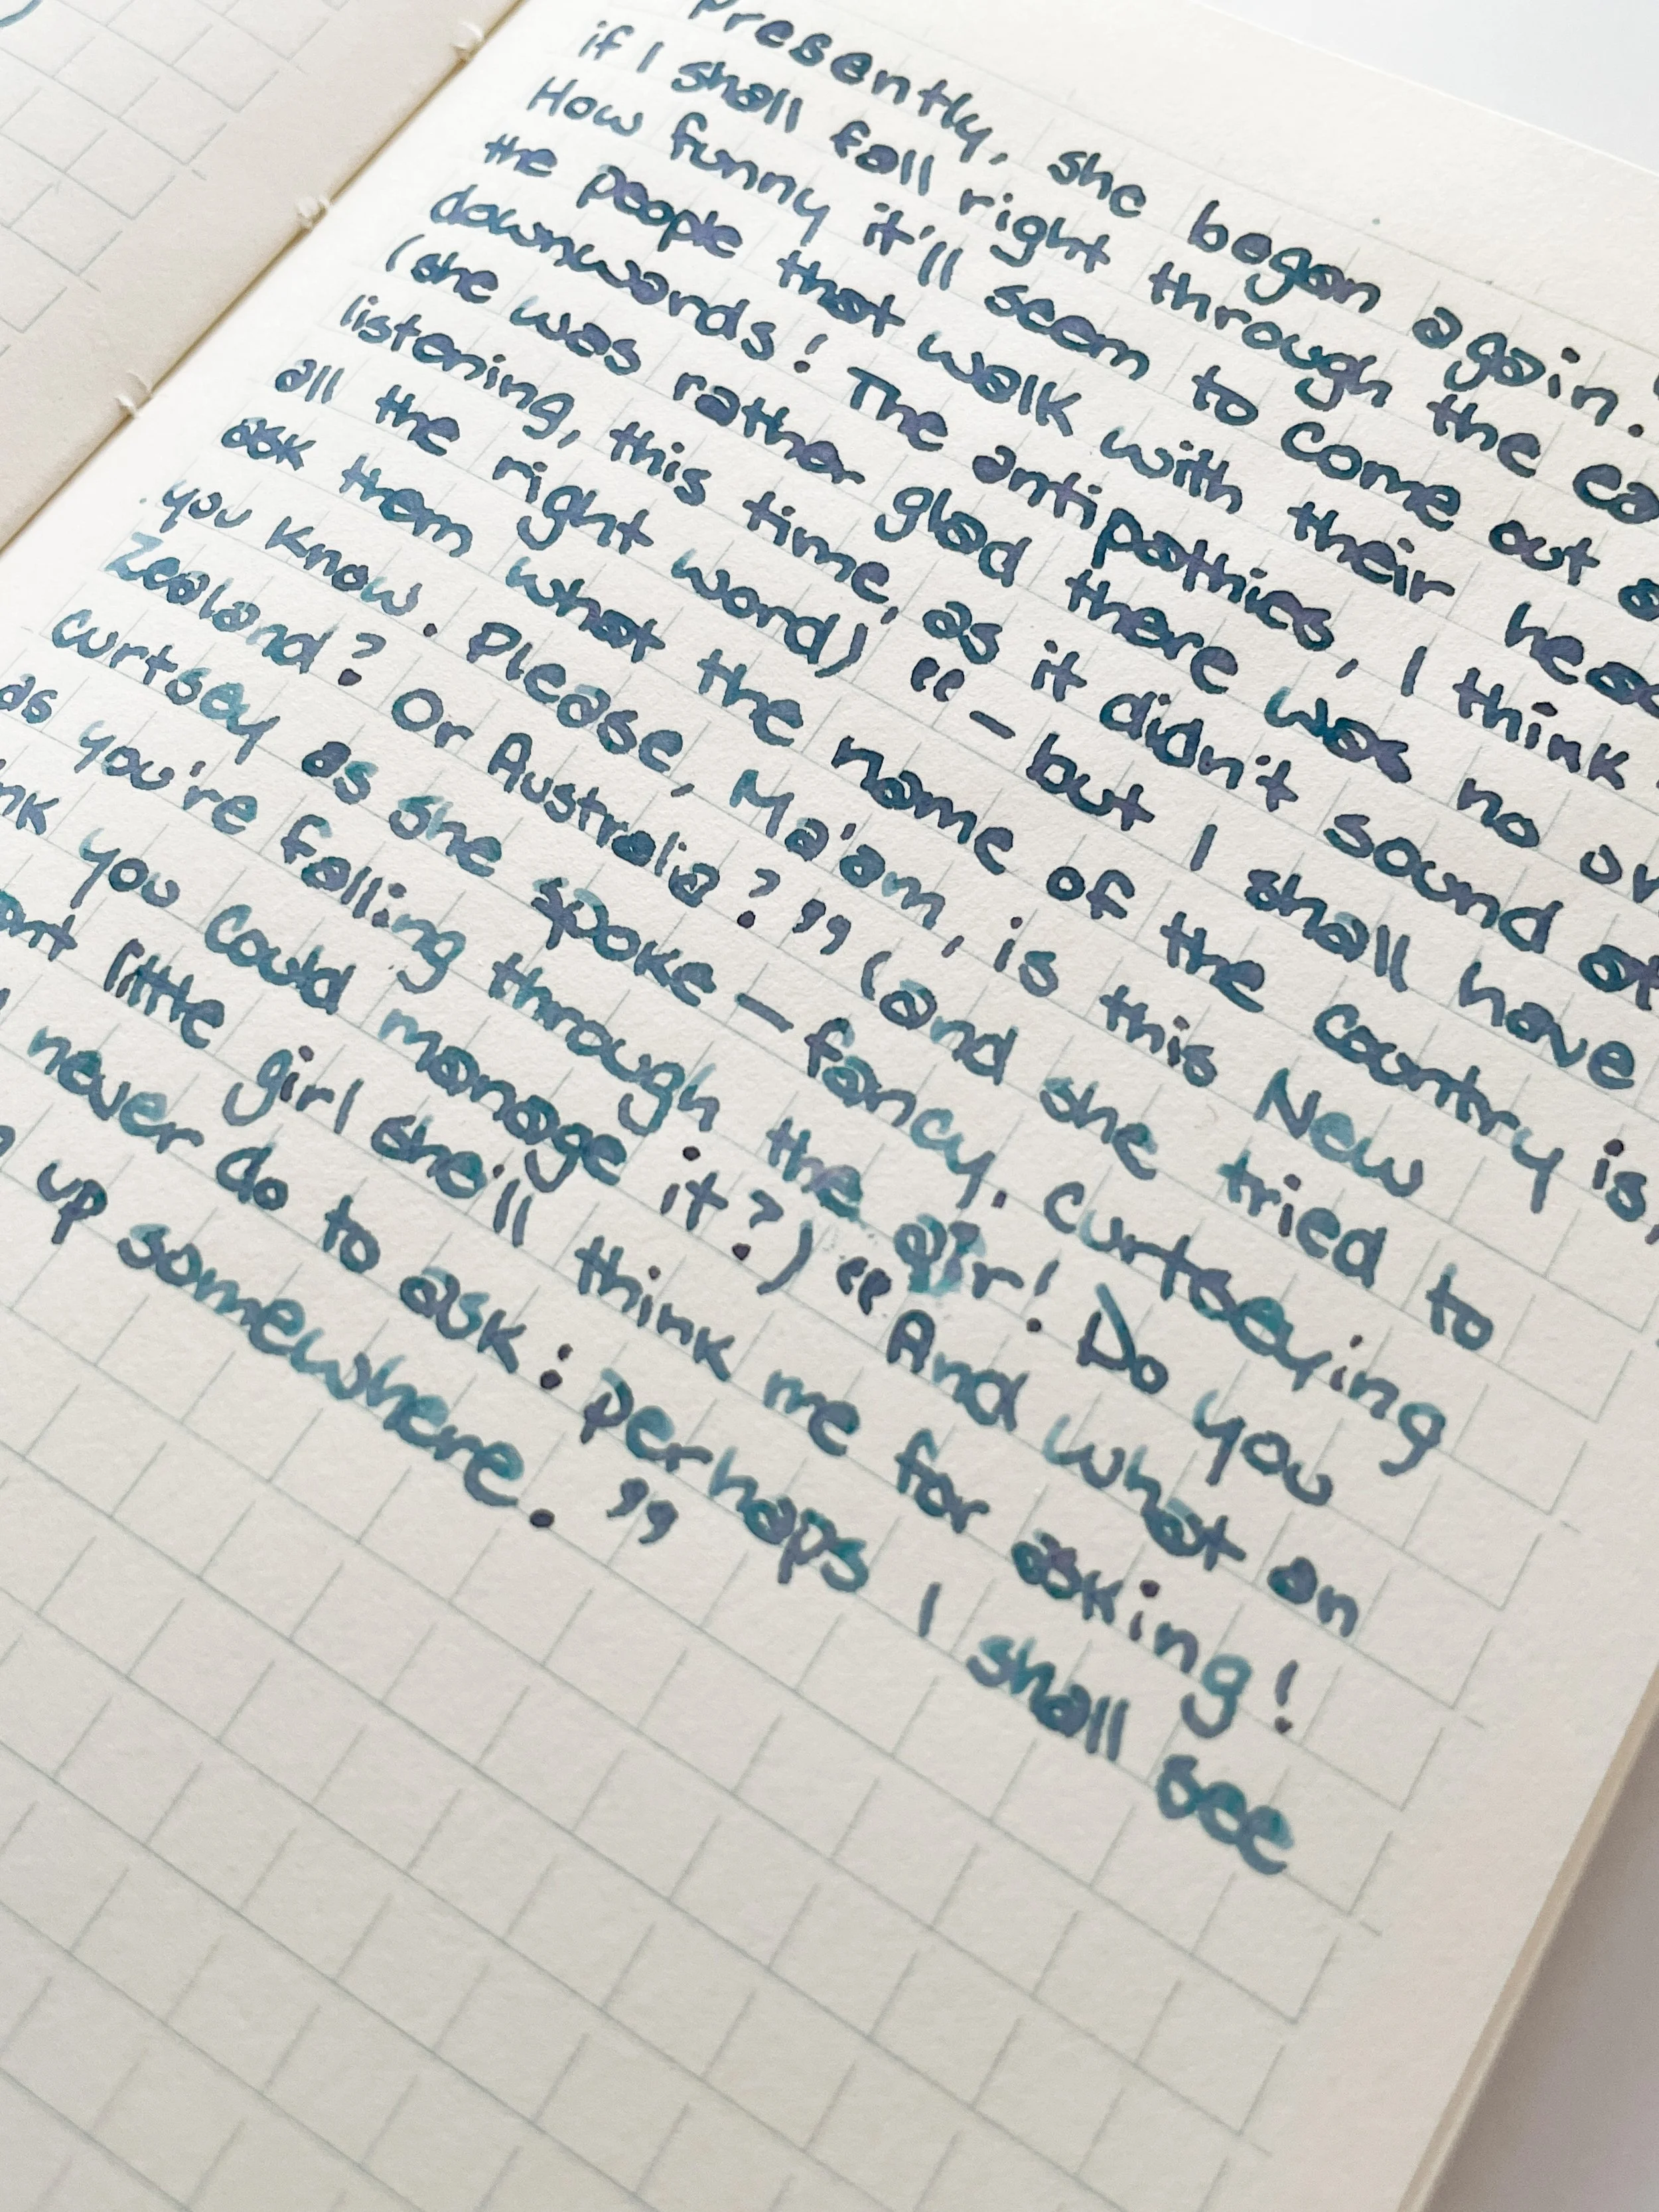 Presently, she began again.
if I shall fall right through the ea
How funny it'll seem to come out a
the people that walk with their hea
downwards! The antipathies, I think
(she was rather glad there was no on
listening, this time, as it didn't sound at
all the right word) " - but I shall have
ask them what the name of the country is,
you know. Please, Ma'am, is this New
Zealand? Or Australia?" (and she tried to
curtsey as she spoke - fancy, curtseying
as you're falling through the air! Do you
nk you could manage it?) "And what an
ant little girl she'll think me for asking!
never do to ask: perhaps I shall see
up somewhere."